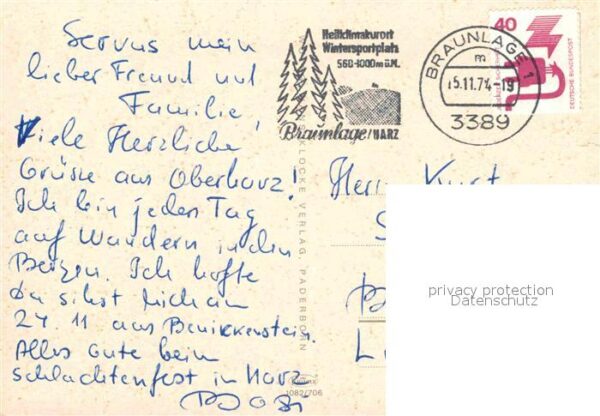 Servus mein
lieber Freund und
Familie,
Viele Herzliche
Grüsse aus Oberharz!
Ich bin jeden Tag
auf Wandern in den
Bergen. Ich hoffe
Du sihst mich am
24.11 aus Bennickenstein.
Alles Gute beim
schlachtenfest in Harz
Heilklimakurort
Wintersportplatz
560-1000m ü.M.
Braunlage/HARZ
BRAUNLAGE 1
m
15.11.74-19
3389
40
DEUTSCHE BUNDESPOST
KLOCKE VERLAG, PADERBORN
1082/706
Herrn Kurt
S
L
privacy protection
Datenschutz